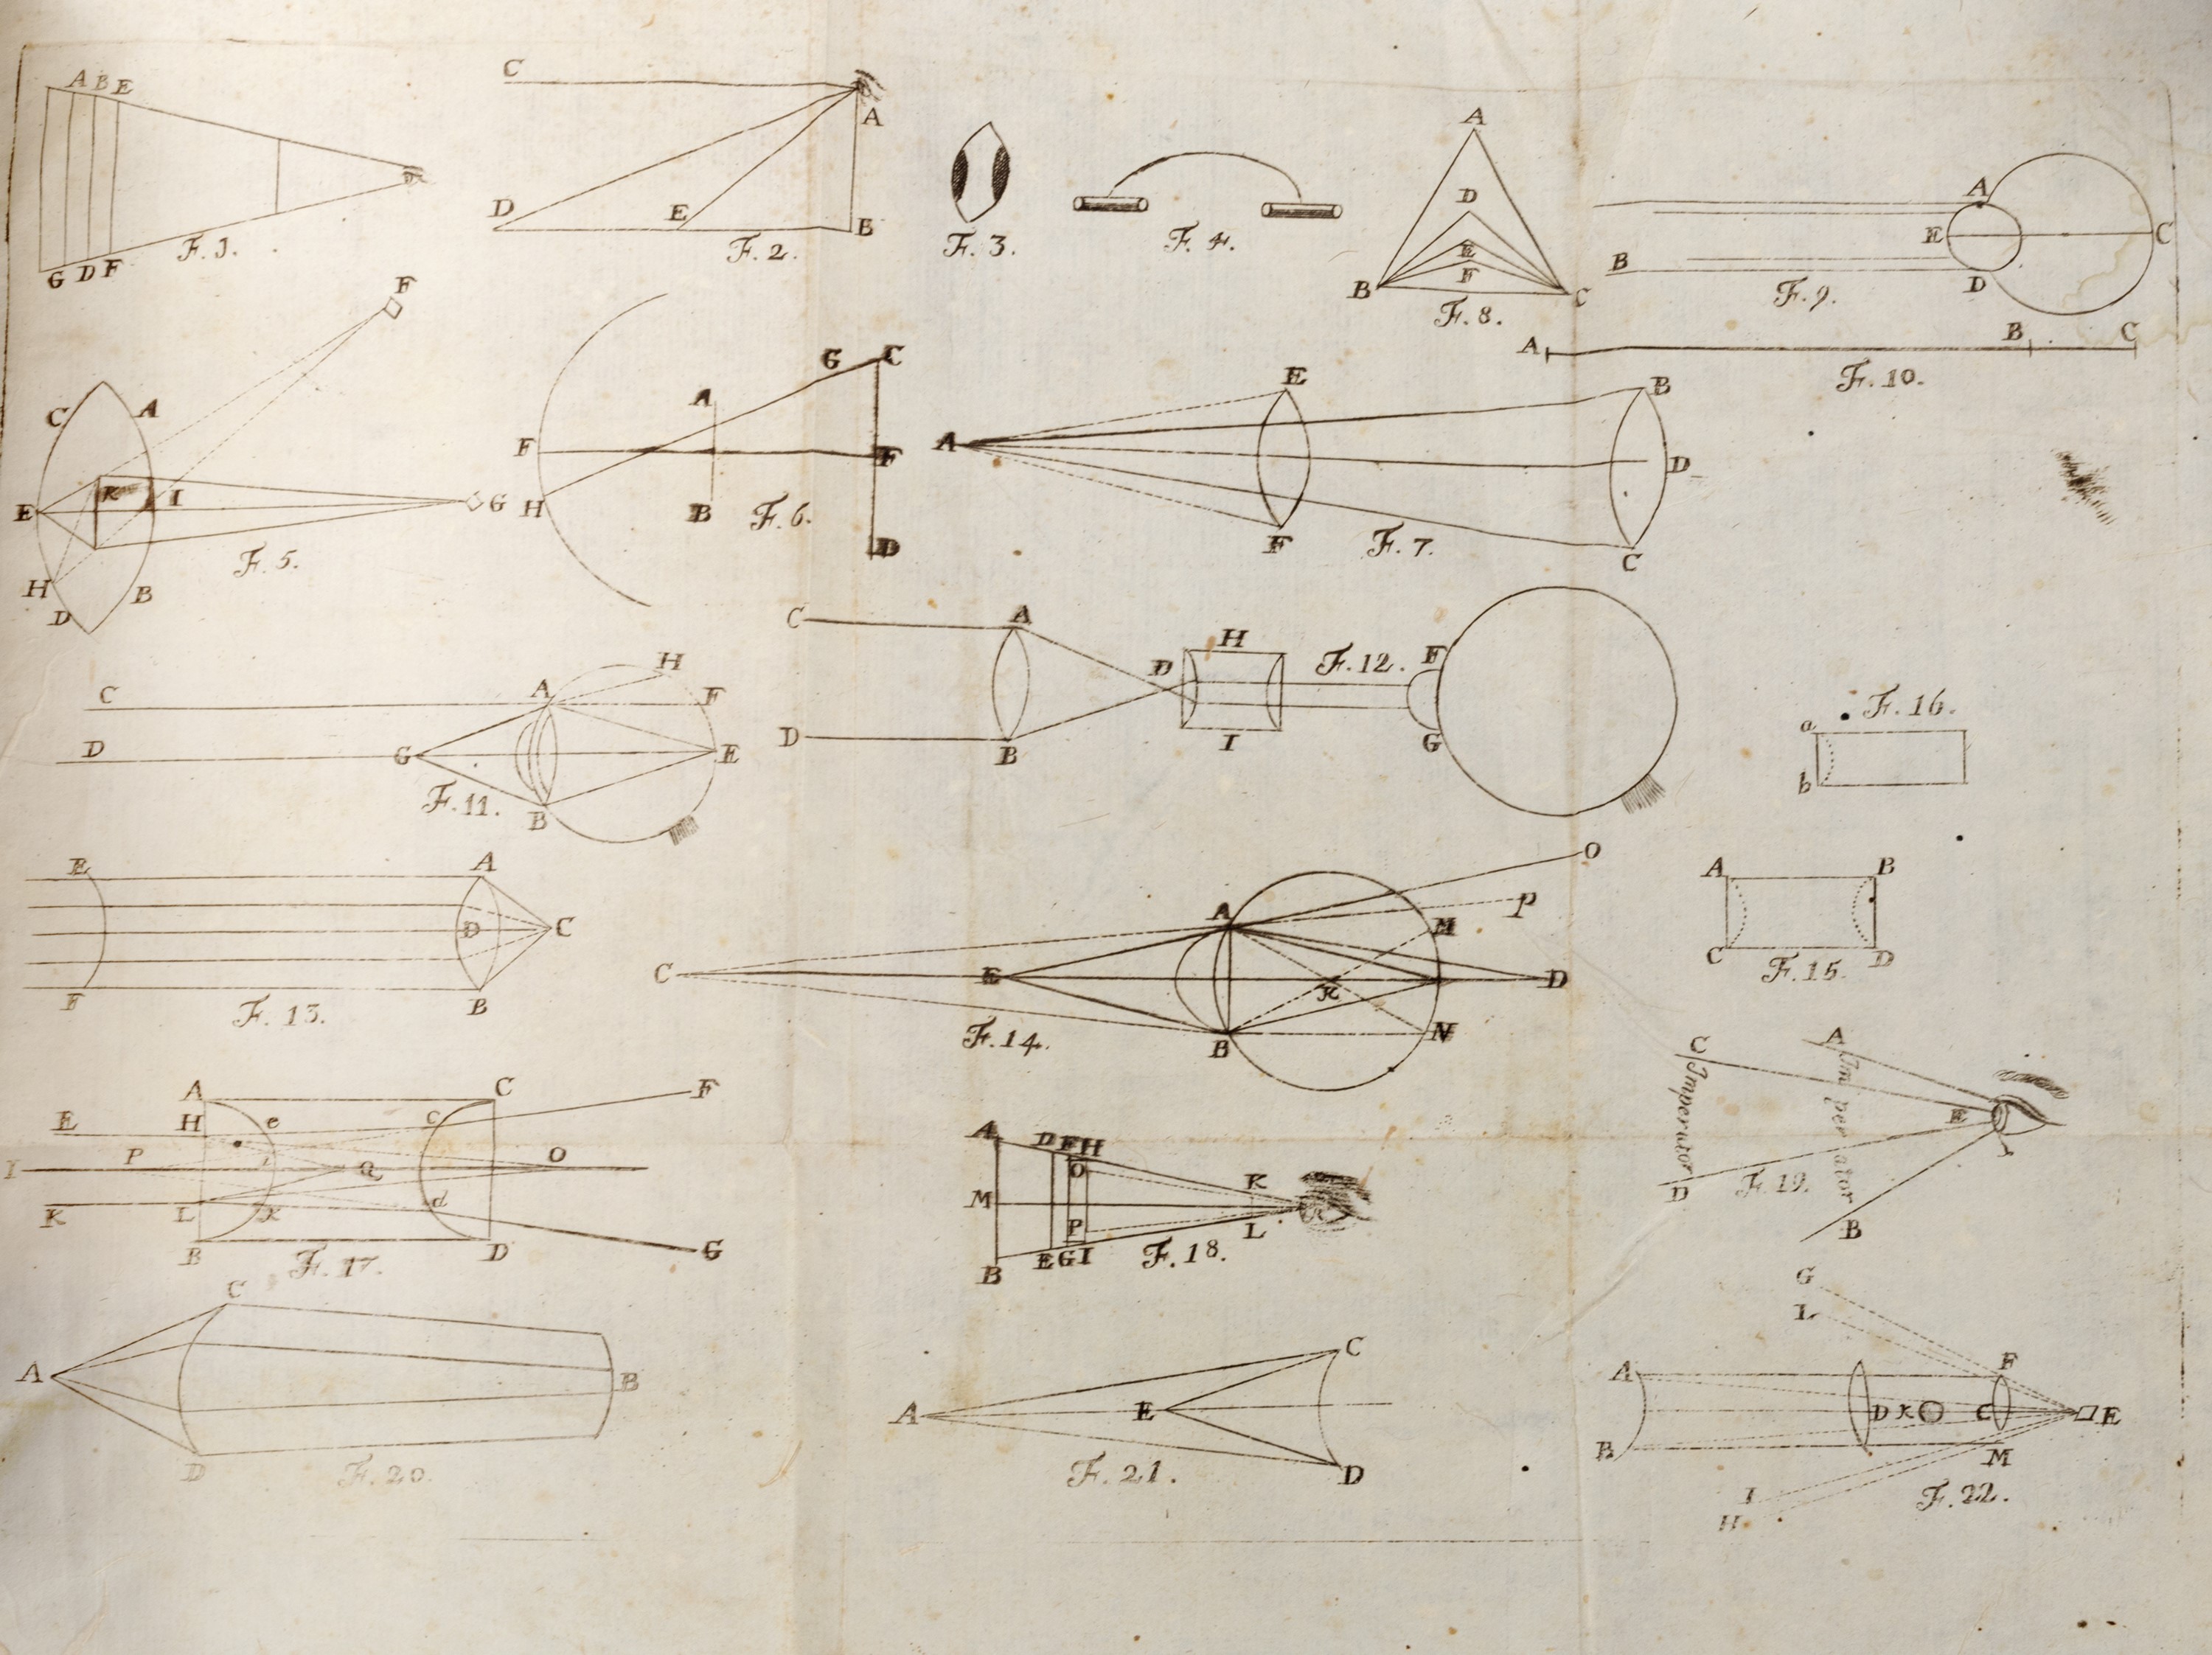 A B E
G D F
F. 1.
C
A
D E B
F. 2.
F. 3.
F. 4.
A
D
E
F
B C
F. 8.
A
E C
B
D
F. 9.
A B C
F. 10.
F
C A
K I
E G
H
D B
F. 5.
G C
A
F F
H B
D
F. 6.
E B
A D
F C
F. 7.
H
C A F
D G E
B
F. 11.
C A H F
D
D B I G
F. 12.
a
b
F. 16.
E A
D C
F B
F. 13.
O
A P
M
C E D
K
B N
F. 14.
A B
C D
F. 15.
A C F
E H e c
I P i Q O
K L K d
B D G
F. 17.
A D F H
O
K
M
P
L
B E G I
F. 18.
C A
Imperator
Imperator
E
D B
F. 19.
C
A B
D
F. 20.
C
A E
D
F. 21.
G
L
A F
D K C E
B M
I
H
F. 22.